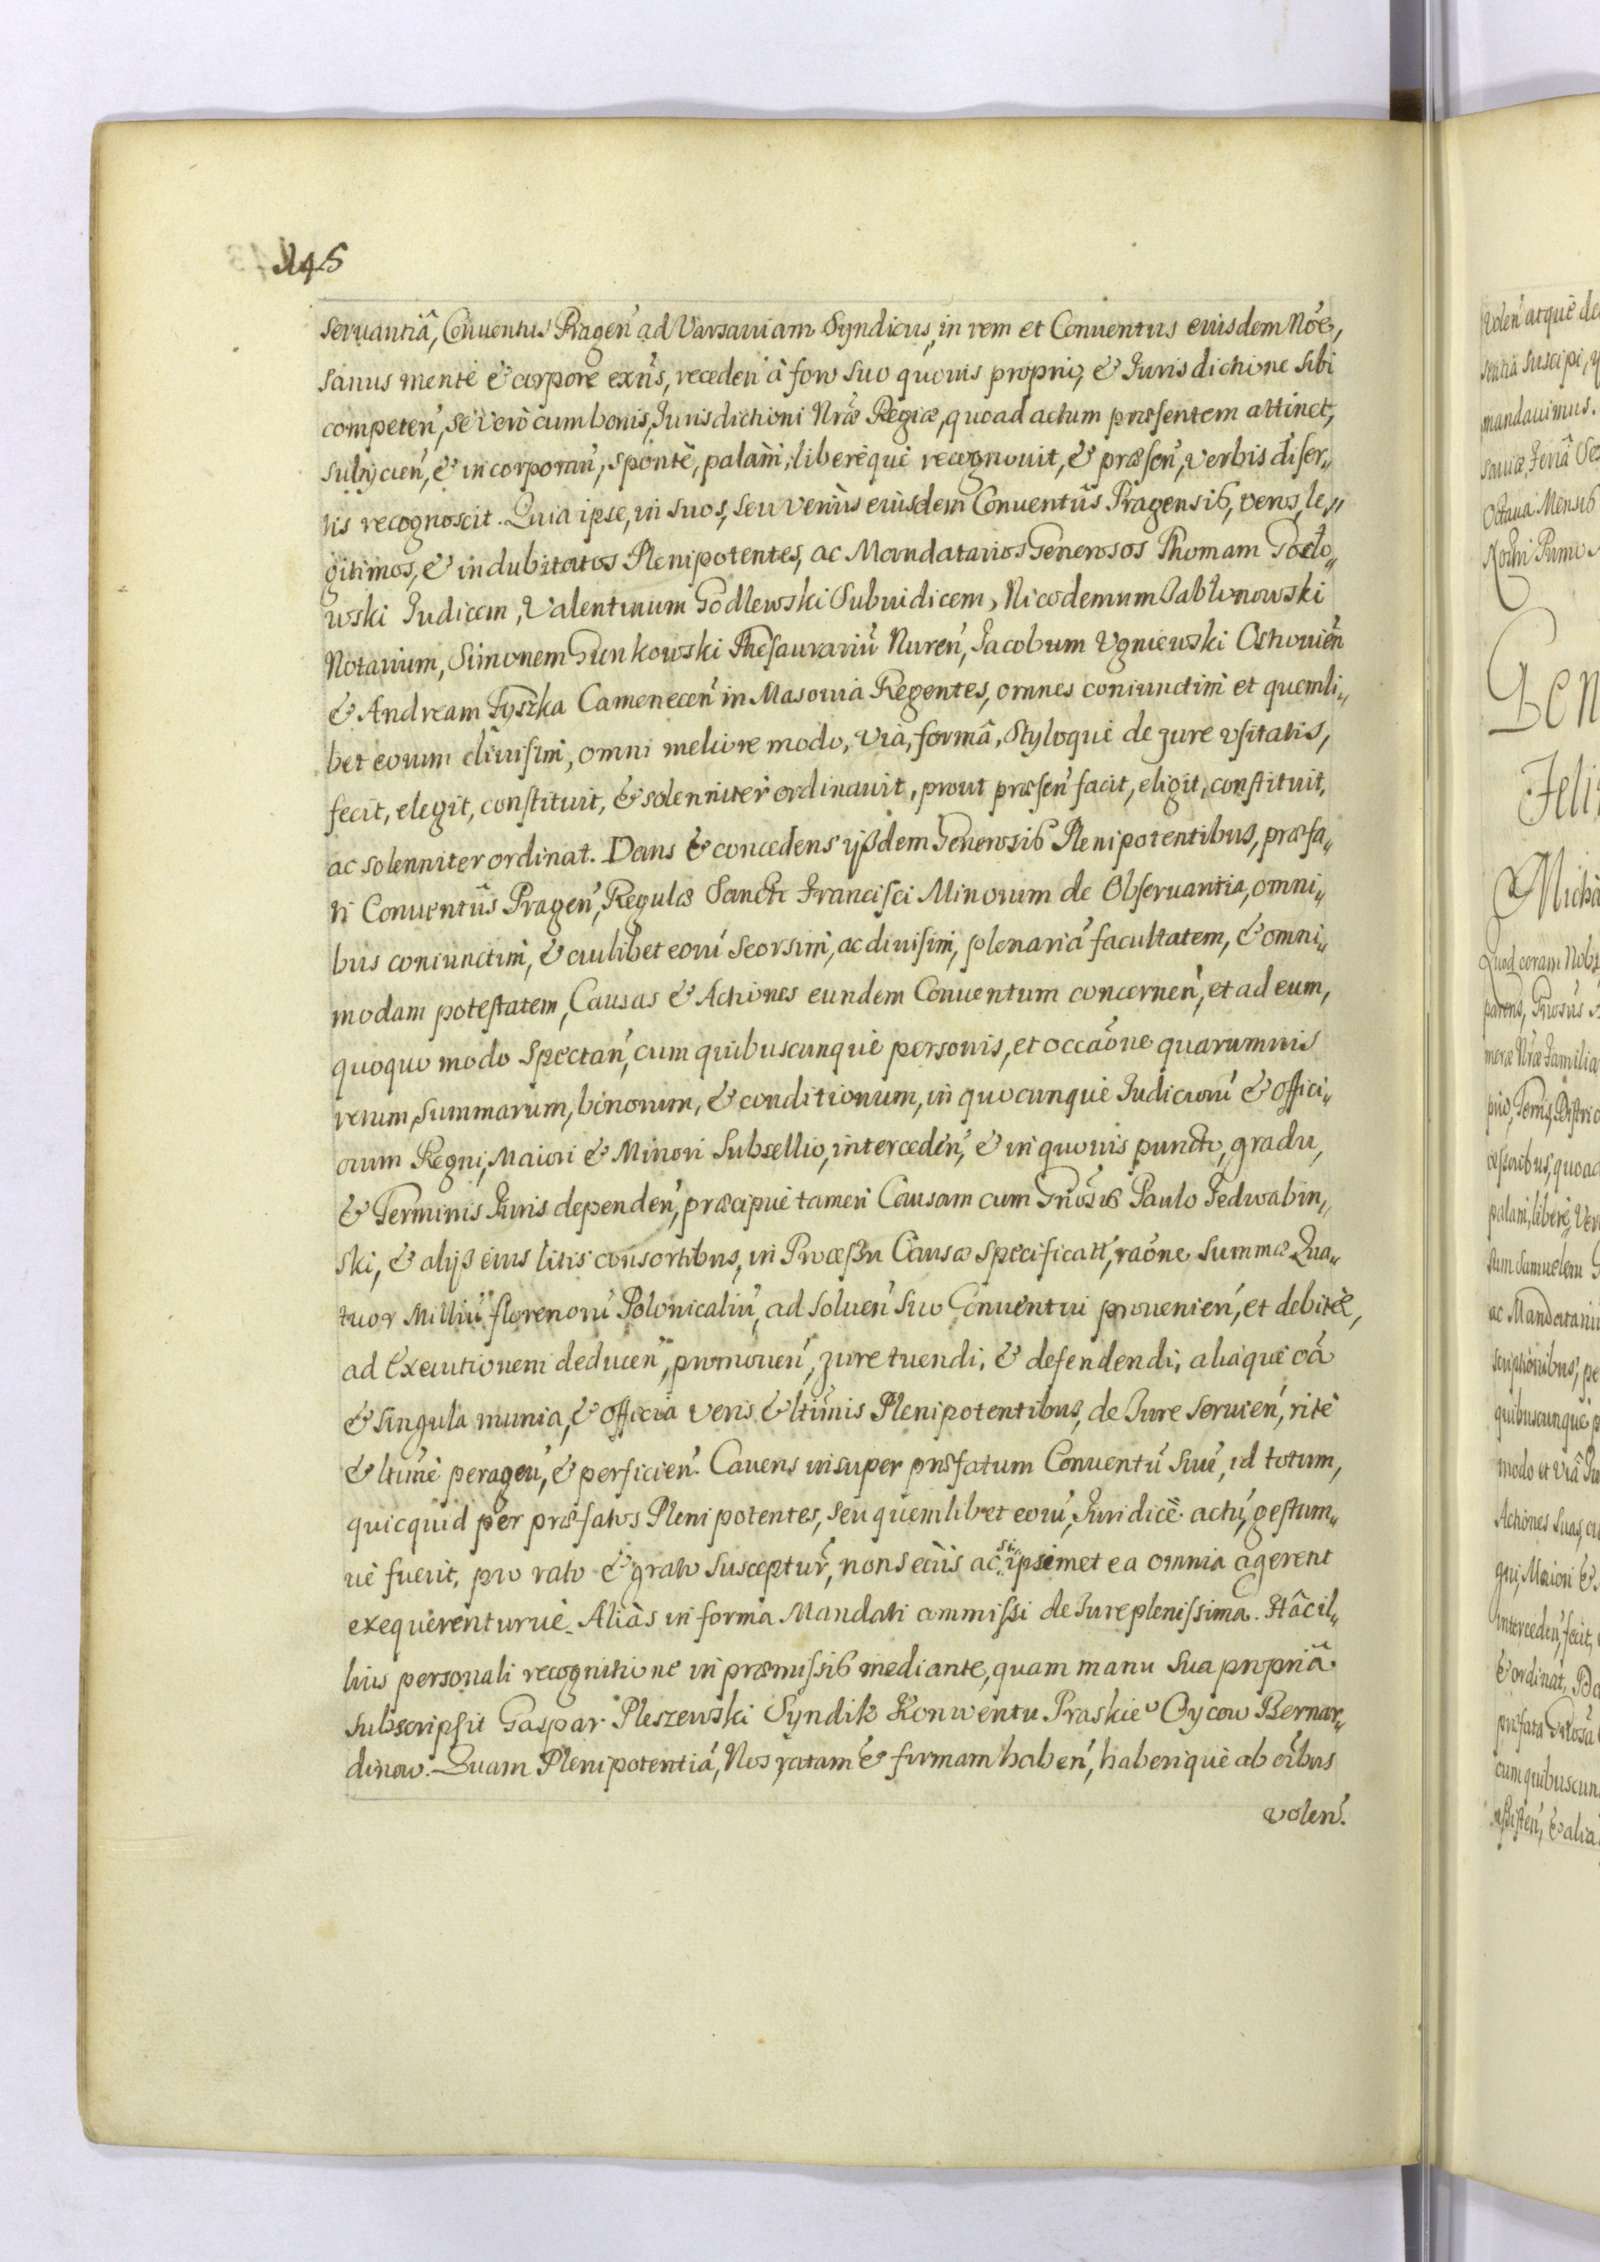 145
Seruantiâ, Conuentus Pragen̄ ad Varsauiam Syndicus, in rem et Conuentus eiusdem Nōē,
sanus mente & corpore exn̄s, receden̄ à foro suo quouis proprio, & Jurisdictione sibi
competen̄, se verò cum bonis, Jurisdictioni Nrāe Regiæ, quoad actum præsentem attinet,
subijcien̄, & incorporan̄, spontè, palàm, liberèquè recognouit, & præsen̄, verbis diser„
tis recognoscit. Quia ipse, in suos, seu veriùs eiusdem Conuentûs Pragensis, veros, le„
gitimos, & indubitatos Plenipotentes, ac Mandatarios Generosos Thomam Godlo„
wski Judicem, Valentinum Godlewski Subiudicem, Nicodemum Jablonowski
Notarium, Simonem Gunkowski Thesaurariū Nuren̄, Jacobum Vgniewski Ostrouien̄
& Andream Tyszka Camenecen̄ in Masouia Regentes, omnes coniunctim et quemli„
bet eorum diuisim, omni meliore modo, viâ, formâ, styloquè de jure vsitatis,
fecit, elegit, constituit, & solenniter ordinauit, prout præsen̄ facit, eligit, constituit,
ac solenniter ordinat. Dans & concedens ijsdem Generosis Plenipotentibus, præfa„
ti Conuentûs Pragen̄, Regulæ Sancti Francisci Minorum de Obseruantia, omni„
bus coniunctim, & cuilibet eorū seorsim, ac diuisim, plenariā facultatem, & omni„
modam potestatem, Causas & Actiones eundem Conuentum concernen̄, et ad eum,
quoquo modo spectan̄, cum quibuscunquè personis, et occāōne quarumuis
rerum, summarum, bonorum, & conditionum, in quocunquè Judiciorū & Offici„
orum Regni, Maiori & Minori Subsellio, interceden̄, & in quouis puncto, gradu,
& Terminis Juris dependen̄, præcipuè tamen Causam cum Gnōsis Paulo Jedwabin„
ski, & alijs eius litis consortibus, in Processu Causæ specificatī, raōne summæ Qua„
tuor Milliū florenorū Polonicaliū, ad soluen̄ suo Conuentui prouenien̄, et debitæ,
ad Executionem deducen̄, promouen̄, jure tuendi, & defendendi, aliaquè oā
& singula munia, & officia veris & ltīmis Plenipotentibus, de Jure seruien̄, ritè
& ltīmè peragen̄, & perficien̄. Cauens insuper præfatum Conuentū suū, id totum,
quicquid per præfatos Plenipotentes, seu quemlibet eorū, Juridicè actū, gestum„
uè fuerit, pro rato & grato suscepturū, non seciùs ac si ipsimet ea omnia agerent
exequerenturuè. Aliàs in forma Mandati commissi de Jure plenissima. Hâc il„
lius personali recognitione in præmissis mediante, quam manu sua propriâ
subscripsit Gaspar Pleszewski Syndik Konwentu Praskieº Oycow Bernar„
dinow. Quam Plenipotentiā, Nos ratam & firmam haben̄, haberiquè ab oībus
volen̄.